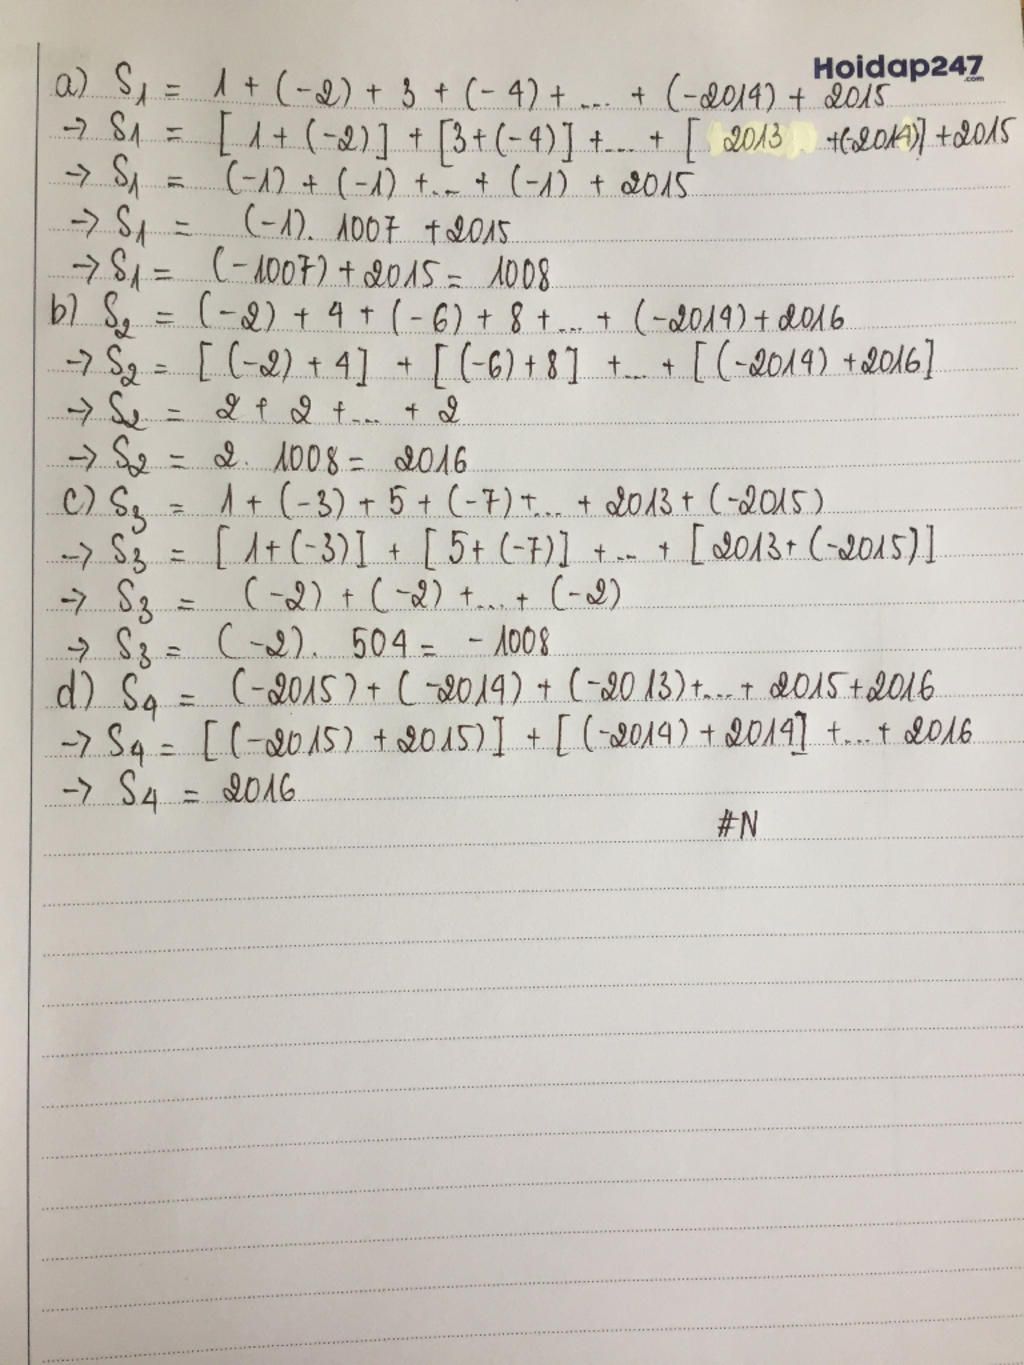 Hoidap247
.com
a) S1 = 1 + (-2) + 3 + (-4) + ... + (-2014) + 2015
→ S1 = [1 + (-2)] + [3+(-4)] +... + [ 2013 +(-2014)] +2015
→ S1 = (-1) + (-1) +... + (-1) + 2015
→ S1 = (-1). 1007 +2015
→ S1 = (-1007) +2015 = 1008
b) S2 = (-2) + 4 + (-6) + 8 +... + (-2014) + 2016
→ S2 = [(-2) + 4] + [(-6) +8] +... + [(-2014) +2016]
→ S2 = 2 + 2 +... + 2
→ S2 = 2. 1008 = 2016
c) S3 = 1 + (-3) + 5 + (-7) +... + 2013 + (-2015)
→ S3 = [1+(-3)] + [5+ (-7)] +... + [2013+ (-2015)]
→ S3 = (-2) + (-2) +... + (-2)
→ S3 = (-2). 504 = -1008
d) S4 = (-2015) + (-2014) + (-2013) +... + 2015 +2016
→ S4 = [(-2015) +2015)] + [(-2014) + 2014] +...+ 2016
→ S4 = 2016
#N